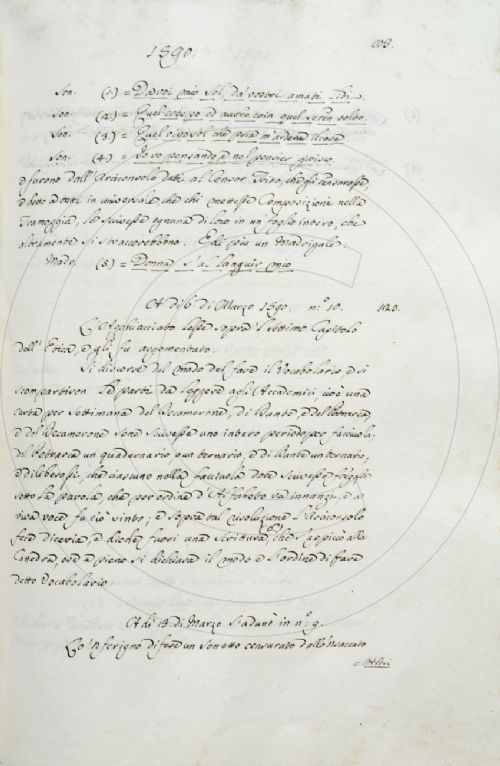 1590.
Son. (1.) = Da voi mio Sol, da' vostri amati
Son. (2.) = Quel crespo ed aureo crin quel seren volto
Son. (3.) = Quel vivo sol che m'ardeva il core
Son. (4.) = Io vo pensando e nel pensier gioisco
e furono dall'Arciconsolo date al Censor Trito, che gli censurasse,
e detto a tutti in universale che chi mettesse Composizione nella
Tramoggia, le scrivesse ognuna di loro in un foglio intero, che
altramente si straccerebbono. E di più un Madrigale.
Madr. (5.) = Donna s'al languir mio
A dì 6. di Marzo 1590. n.º 10. 120.
L'Agghiacciato lesse sopra 'l settimo Capitolo
dell'Etica, e gli fu argomentato.
Si discorse del modo del fare il Vocabolario e si
scompartiron le parti da leggere agli Accademici, cioè una
carta per settimana del Decamerone, di Dante, e del Petrarca,
e del Decamerone se ne scrivesse uno intero periodo per facciuola,
del Petrarca un quadernario o un ternario, e di Dante un ternario,
e si deliberò, che ciascuno nella facciuola dove scrivesse
sotto la parola, che per ordine d'Alfabeto va innanzi, e a
viva voce fu ciò vinto; e sopra tal risoluzione l'Arciconsolo
fece diceria, e dione fuori una scrittura, che s'appiccò alla
Cattedra, ove appieno si dichiara il modo e l'ordine di fare
detto Vocabolario.
A dì 13. di Marzo s'adunò in n.º 9.
Lo 'Nferigno disse un Sonetto censurato dallo 'Nsaccato